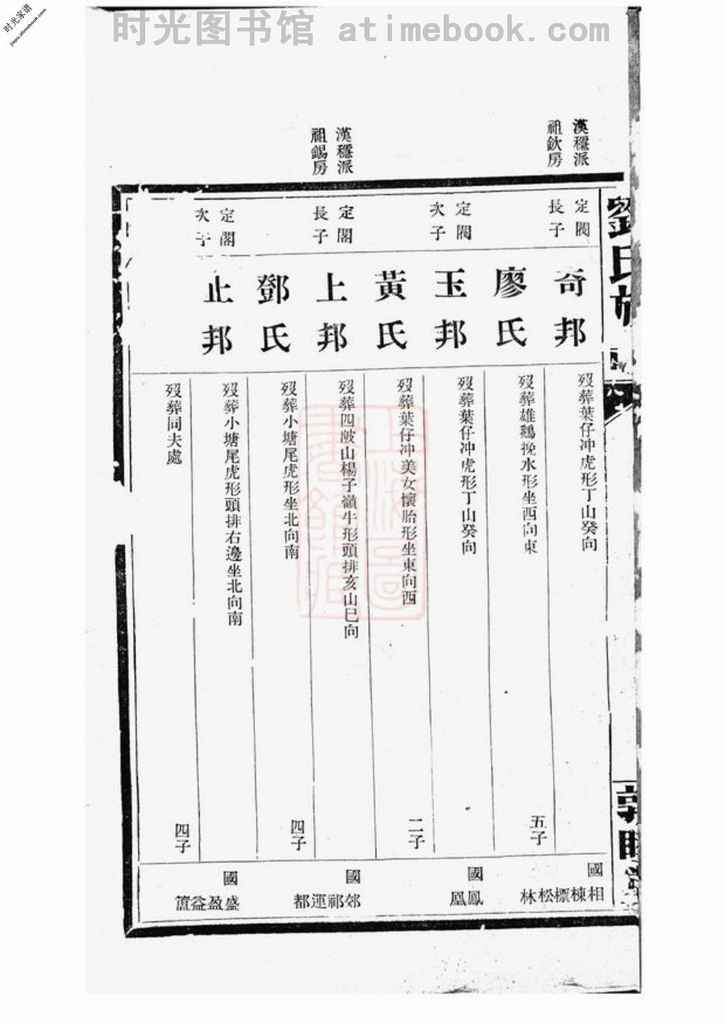 时光图书馆 atimebook.com
时光家谱
劉氏族
敦睦堂
漢穩派
祖欽房
定閥
長子
奇邦
歿葬葉仔冲虎形丁山癸向
廖氏
歿葬雄鷄挽水形坐西向東
五子
國
相棟標松林
定閥
次子
玉邦
歿葬葉仔冲虎形丁山癸向
黃氏
歿葬葉仔冲美女懷胎形坐東向西
二子
國
鳳凰
漢穩派
祖錫房
定閣
長子
上邦
歿葬四敱山楊子嶺牛形頭排亥山巳向
鄧氏
歿葬小塘尾虎形坐北向南
四子
國
郊祁運都
定閣
次子
止邦
歿葬小塘尾虎形頭排右邊坐北向南
歿葬同夫處
四子
國
盛盈益